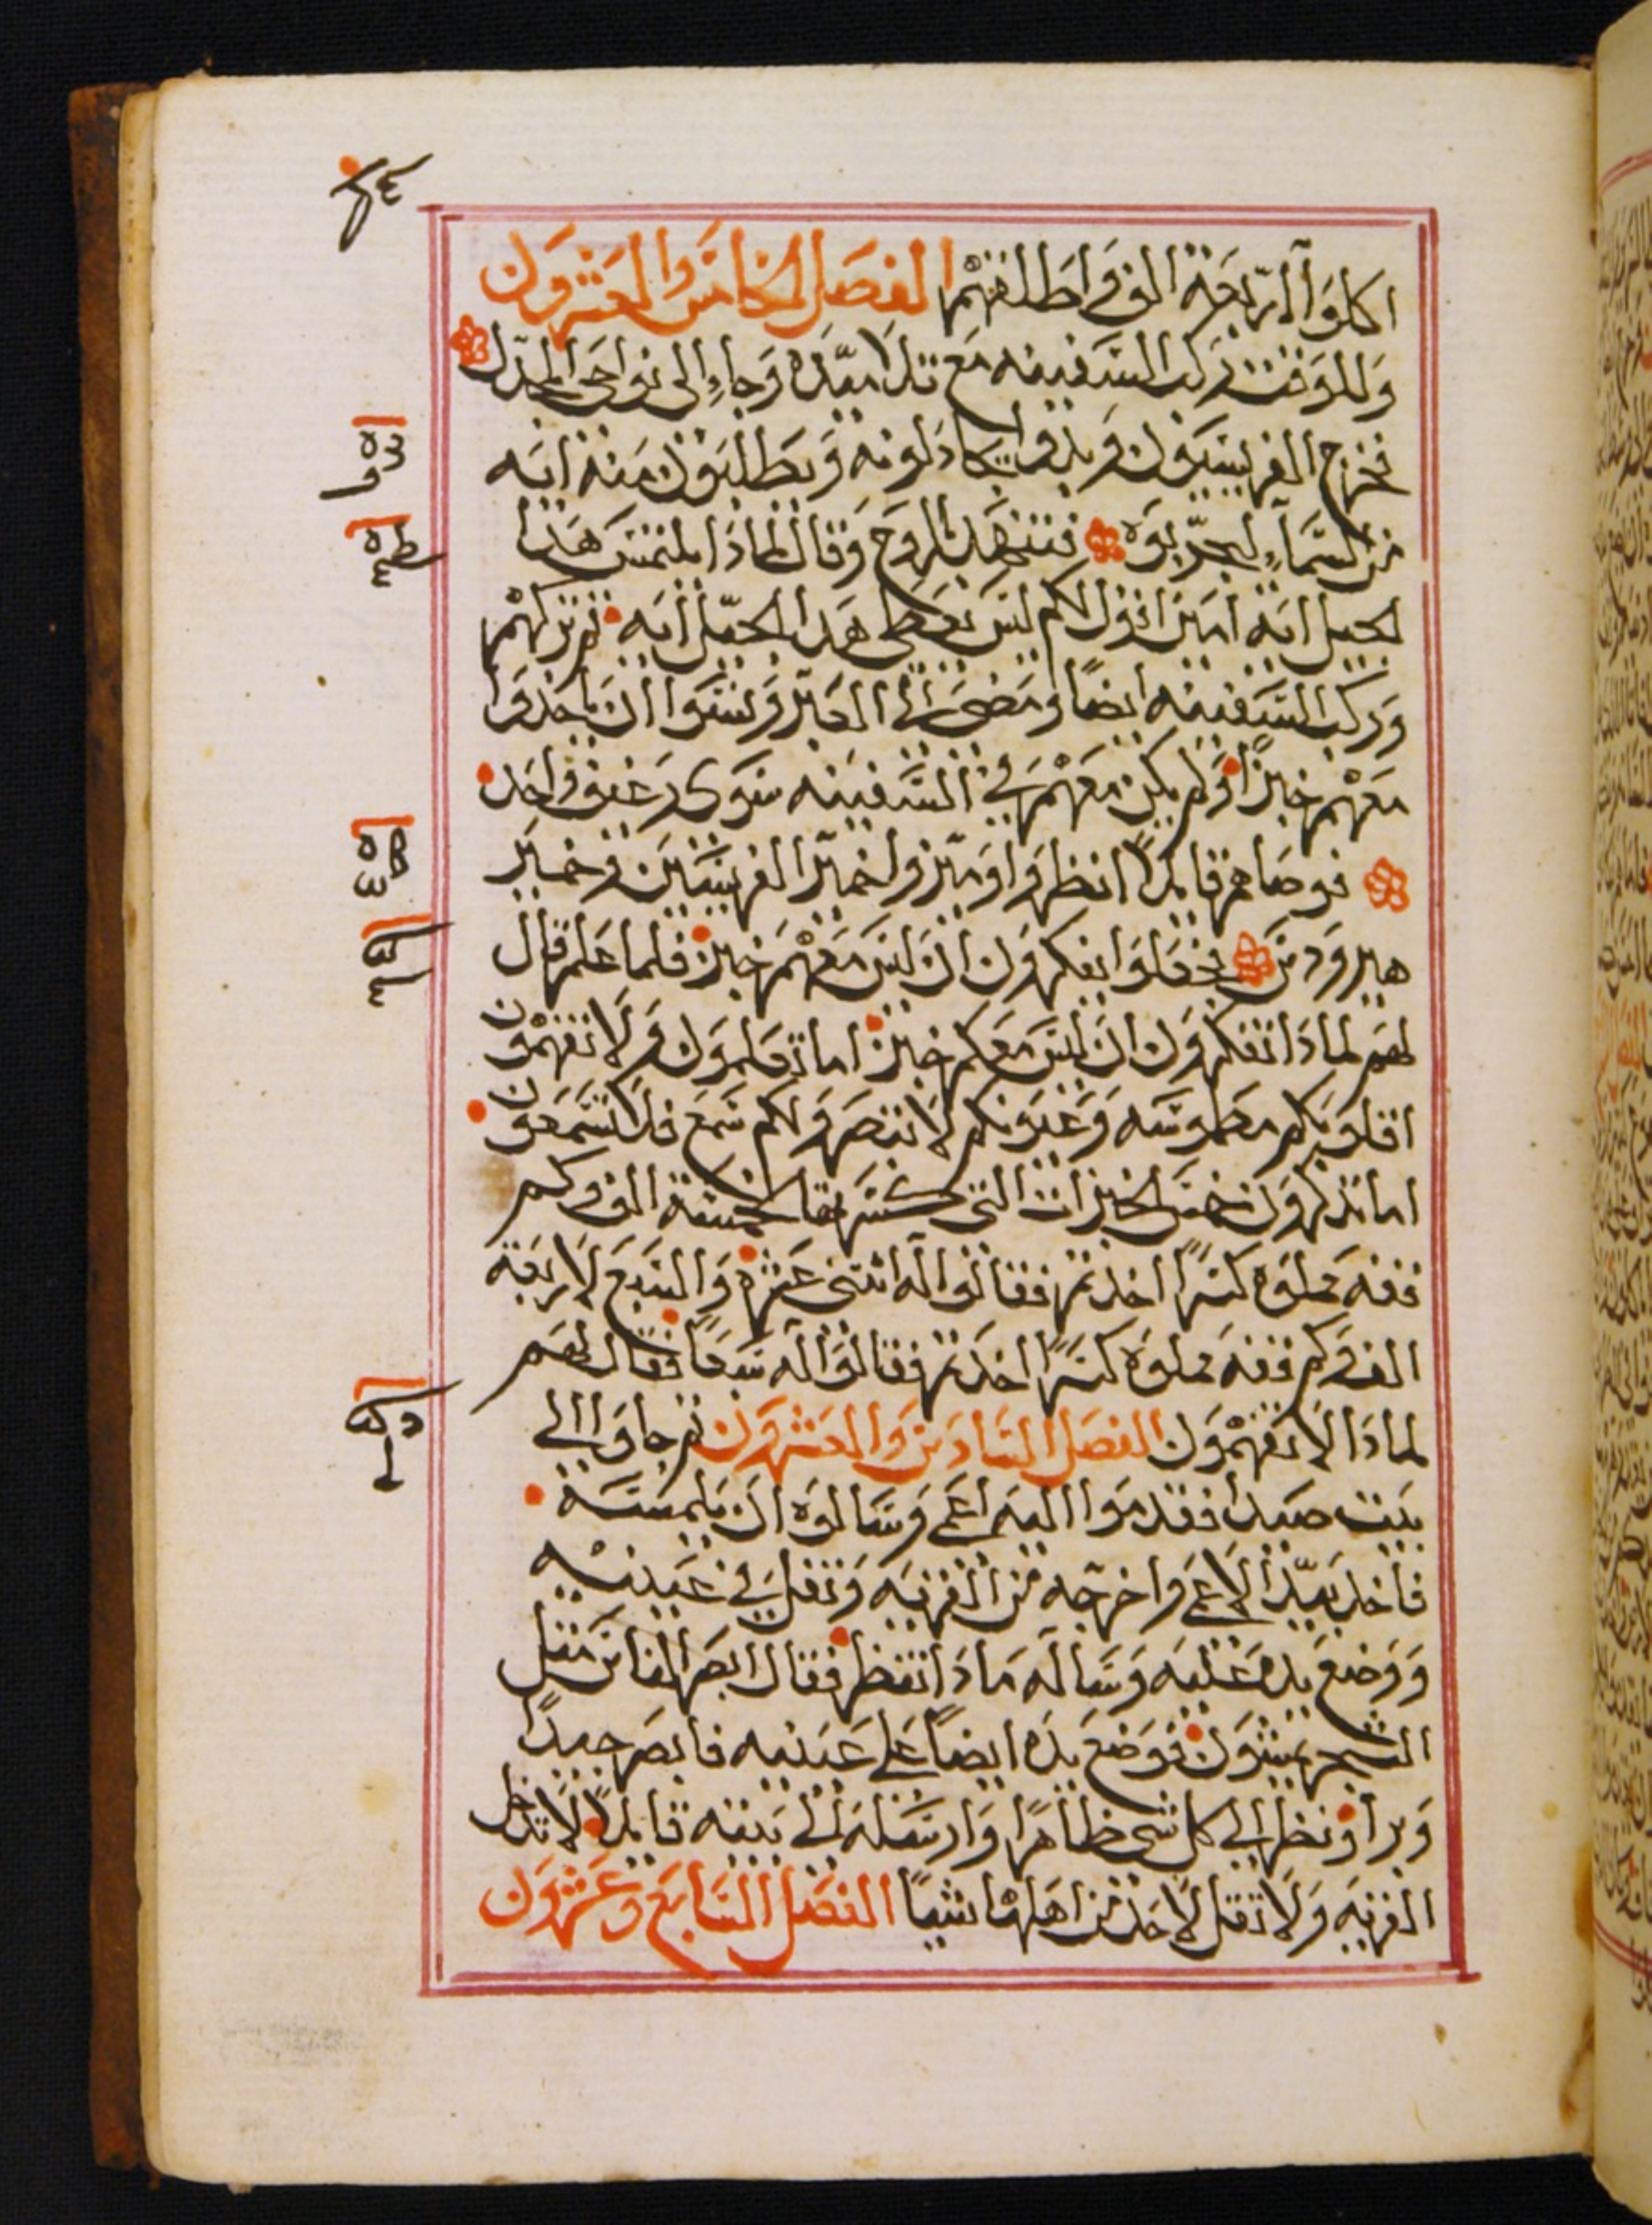 اكلوا اربعة الف واطلقهم الفصل الخامس والعشرون
وللوقت ركب السفينه مع تلاميذه وجاء الى نواحى المجدل
فخرج الفريسيون وبدوا يجادلونه ويطلبون منه ايه
من السماء ليجربوه فتنهد بالروح وقال لماذا يلتمس هذا
الجيل ايه امين اقول لكم ليس يعطى هذا الجيل ايه ثم تركهم
وركب السفينه ايضا ومضى الى العبر ونسوا ان ياخذوا
معهم خبزا ولم يكن معهم في السفينه سوى رغيف واحد
فوصاهم قايلا انظروا وميزوا خمير الفريسيين وخمير
هيرودس فجعلوا يفكرون ان ليس معهم خبز فلما علم قال
لهم لماذا تفكرون ان ليس معكم خبز اما تعلمون ولا تفهمون
اقلوبكم مطموسه وعيونكم لا تبصر ولكم سمع فلا تسمعون
اما تذكرون خمس الخبزات التي كسرتها لخمسة الف وكم
قفه مملوه كسرا اخذتم فقالوا له اثنى عشره والسبع لاربعة
الف وكم قفه مملوه كسرا اخذتم فقالوا له سبعا فقال لهم
لماذا لا تفهمون الفصل السادس والعشرون ثم جاوا الى
بيت صيدا فقدموا اليه اعمى وسالوه ان يلمسه
فاخذ بيد الاعمى واخرجه من القريه وتفل في عينيه
ووضع يده عليه وساله ماذا تنظر فقال ابصر الناس مثل
الشجر يمشون فوضع يده ايضا على عينيه فابصر جيدا
وبرا ونظر الى كل شى ظاهرا وارسله الى بيته قايلا لا تدخل
القريه ولا تقل لاحد من اهلها شيا الفصل السابع وعشرون